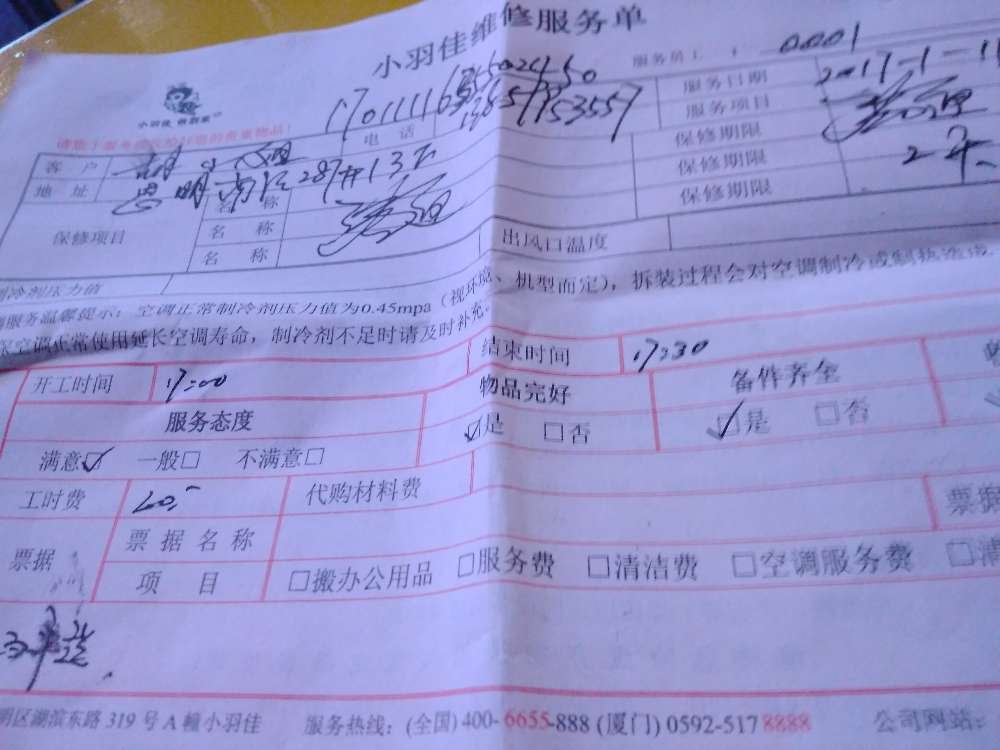 小羽佳维修服务单
小羽佳
服务员工 0001
请您于服务前收检好您的贵重物品!
电话
服务日期 2017-1-11
客户
服务项目
地址 思明南路287#
保修期限
保修项目 名称
保修期限 2年
名称
保修期限
名称
制冷剂压力值
出风口温度
服务温馨提示:空调正常制冷剂压力值为0.45mpa(视环境、机型而定),拆装过程会对空调制冷或制热造成
空调正常使用延长空调寿命,制冷剂不足时请及时补充。
开工时间 17:00 结束时间 17:30
服务态度 物品完好 备件齐全
满意☑ 一般□ 不满意□ ☑是 □否 ☑是 □否
工时费 代购材料费
票据 票据名称 票据
项目 □搬办公用品 □服务费 □清洁费 □空调服务费 □清
明区湖滨东路319号A幢小羽佳 服务热线:(全国)400-6655-888 (厦门)0592-5178888 公司网站: